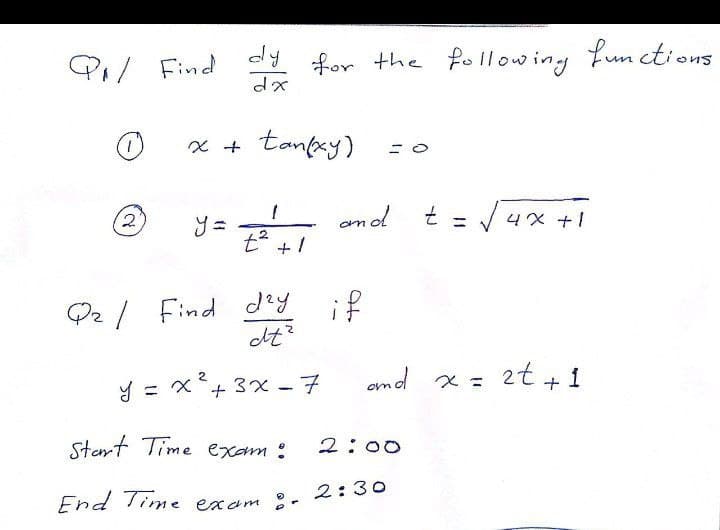 Q1/ Find dy/dx for the following functions
① x + tan(xy) = 0
② y = 1/(t² + 1) and t = √(4x + 1)
Q2/ Find d²y/dt² if
y = x² + 3x - 7 and x = 2t + 1
Start Time exam : 2:00
End Time exam :- 2:30